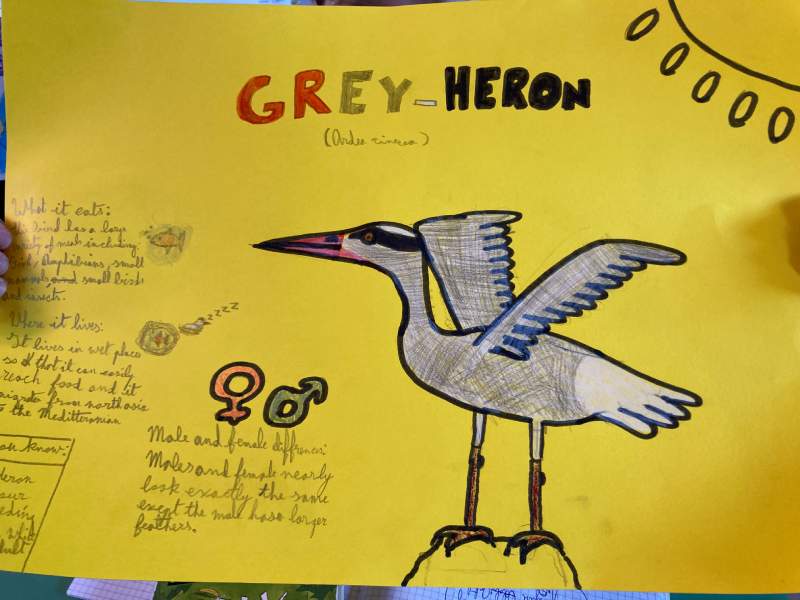 GREY-HERON
(Ardea cinerea)
What it eats:
bird has a large
variety of meals including:
fish, Amphibians, small
mammals, and small birds
and insects.
zzzz
Where it lives:
It lives in wet places
so that it can easily
reach food and it
from north asia
to the Meditteronian
Male and female diffrences:
Males and female nearly
look exactly the same
exept the male has a larger
feathers.
you know:
Heron